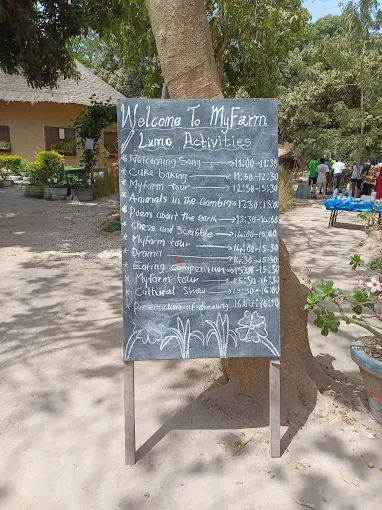 Welcome To MyFarm
Lumo Activities
* Welcoming Song → 11:00 - 11:30
* Cake baking → 11:30 - 12:30
* Myfarm tour → 12:30 -
* Animals In the Gambia
* Poem about the earth → 13:30 - 14:00
* Chess and Scrabble → 14:00 -
* Myfarm tour → 14:00 - 15:30
* Drama → 14:30 - 15:30
* Eating competition → 15:00 - 15:30
* Myfarm tour → 15:30 - 16:30
* Cultural Show → 15:30 - 16:00
* Presentation of drawing 16:00 - 16:30